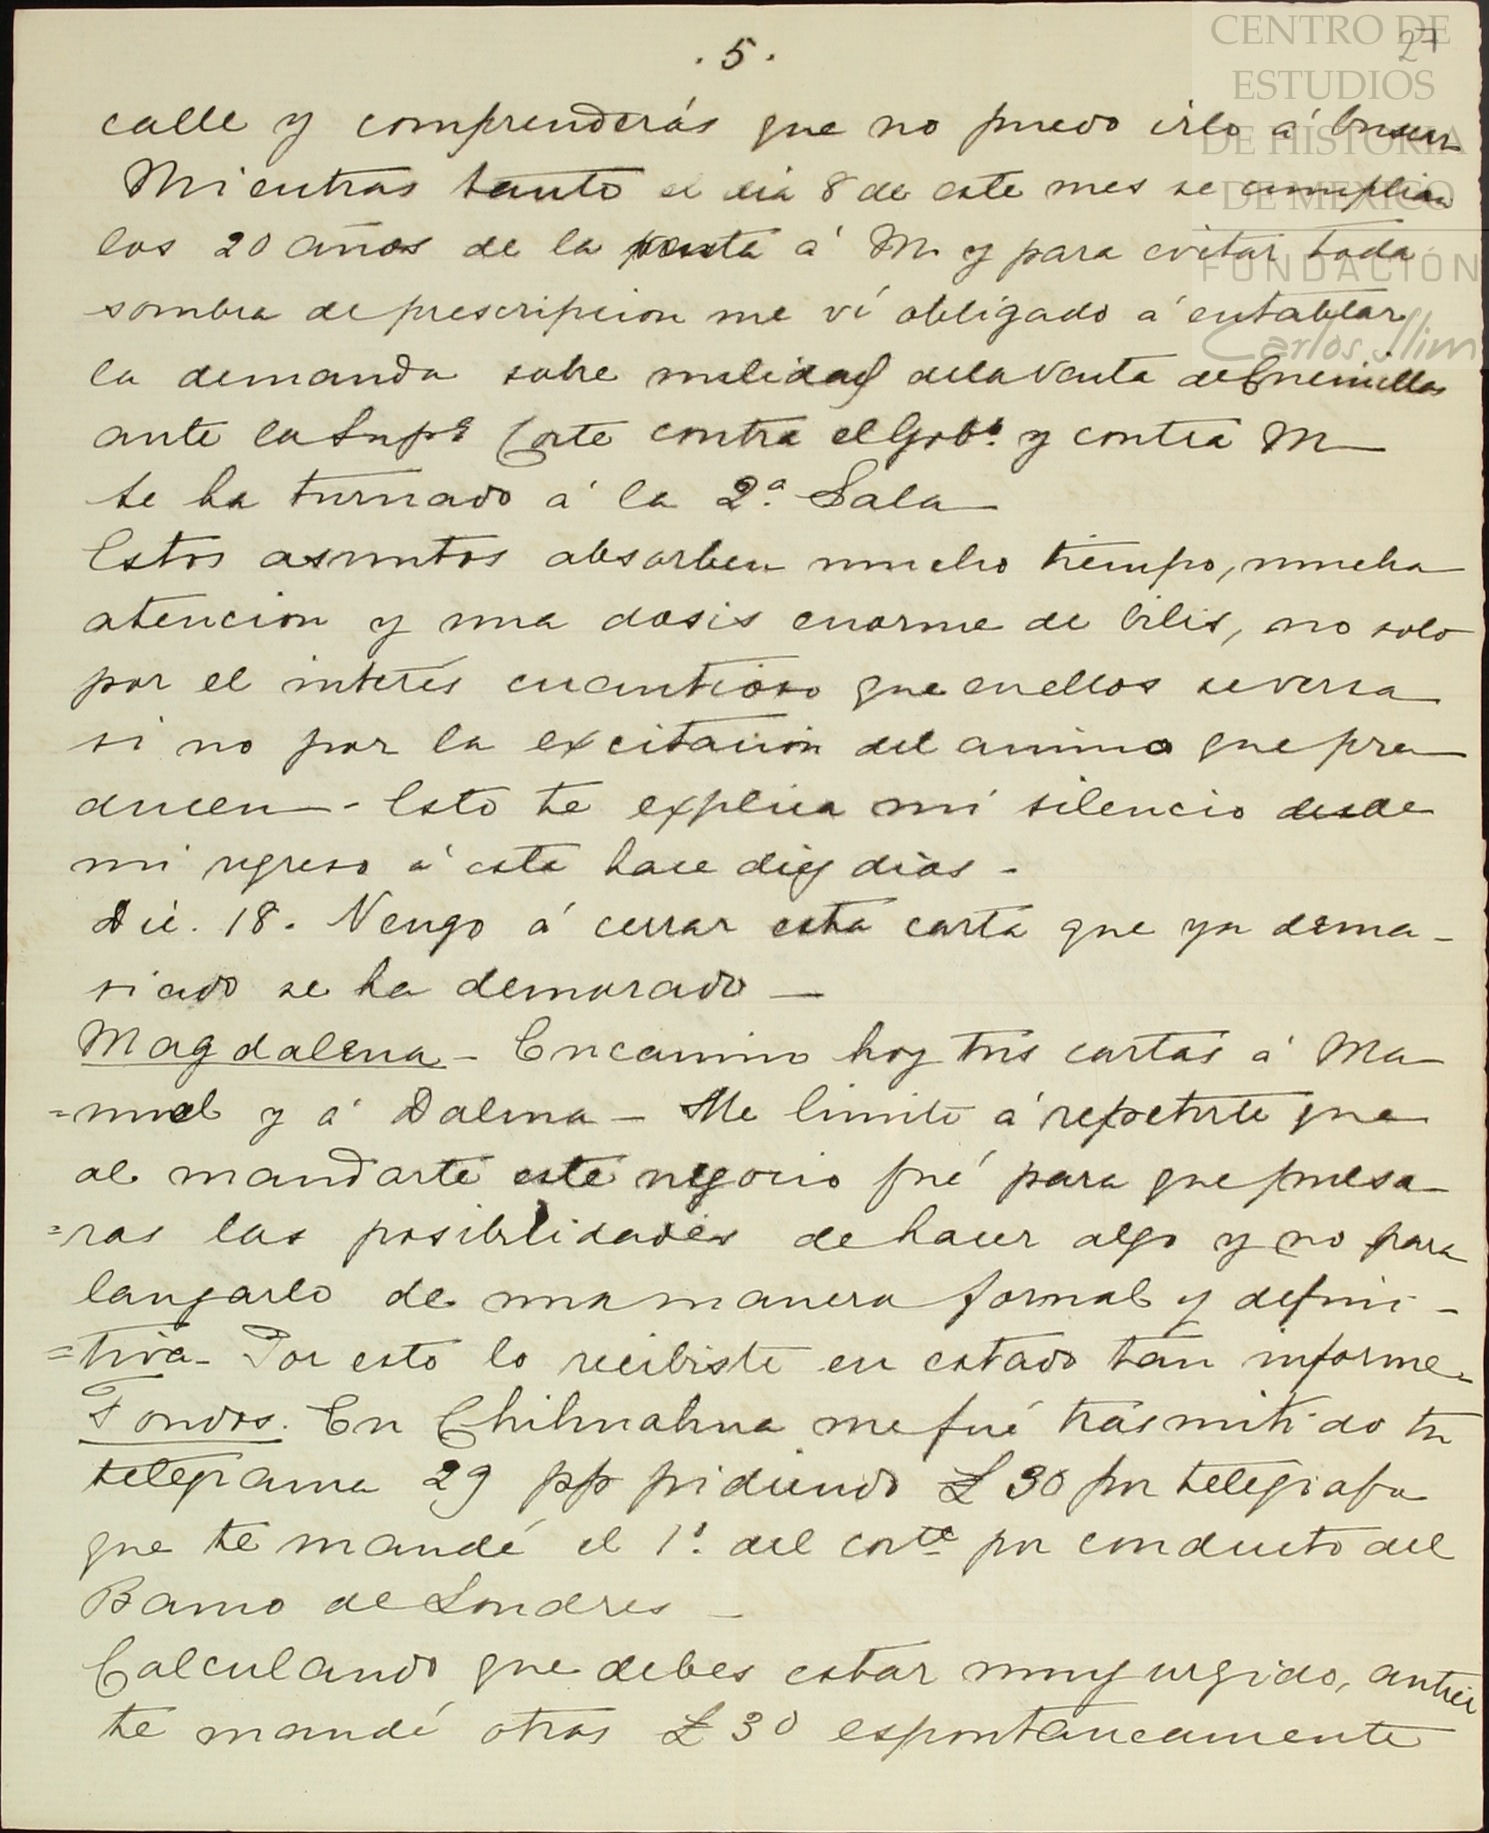 . 5 .
27
CENTRO DE
ESTUDIOS
DE HISTORIA
DE MEXICO
FUNDACIÓN
Carlos Slim
calle y comprenderás que no puedo irlo á buscar
Mientras tanto el dia 8 de este mes se cumplian
los 20 años de la venta á M. y para evitar toda
sombra de prescripcion me ví obligado á entablar
la demanda sobre nulidad de la venta de
ante la Supa Corte contra el Gobo. y contra M—
Se ha turnado á la 2.a Sala—
Estos asuntos absorben mucho tiempo, mucha
atencion y una dosis enorme de bilis, no solo
por el interés cuantioso que en ellos se versa
si no por la excitacion del animo que pro—
ducen - Esto te explica mi silencio desde
mi regreso á esta hace diez dias -
Dic. 18. Vengo á cerrar esta carta que ya dema-
siado se ha demorado —
Magdalena - Encamino hoy tus cartas á Ma-
=nuel y á Dalma — Me limito á repetirte que
al mandarte este negocio fué para que pulsa-
=ras las posibilidades de hacer algo y no para
lanzarlo de una manera formal y defini-
=tiva- Por esto lo recibiste en estado tan informe-
Fondos. En Chihuahua me fué trasmitido tu
telegrama 29 pp pidiendo £ 30 por telegrafo
que te mandé el 1o. del corte por conducto del
Banco de Londres —
Calculando que debes estar muy urgido,
te mandé otras £ 30 espontaneamente